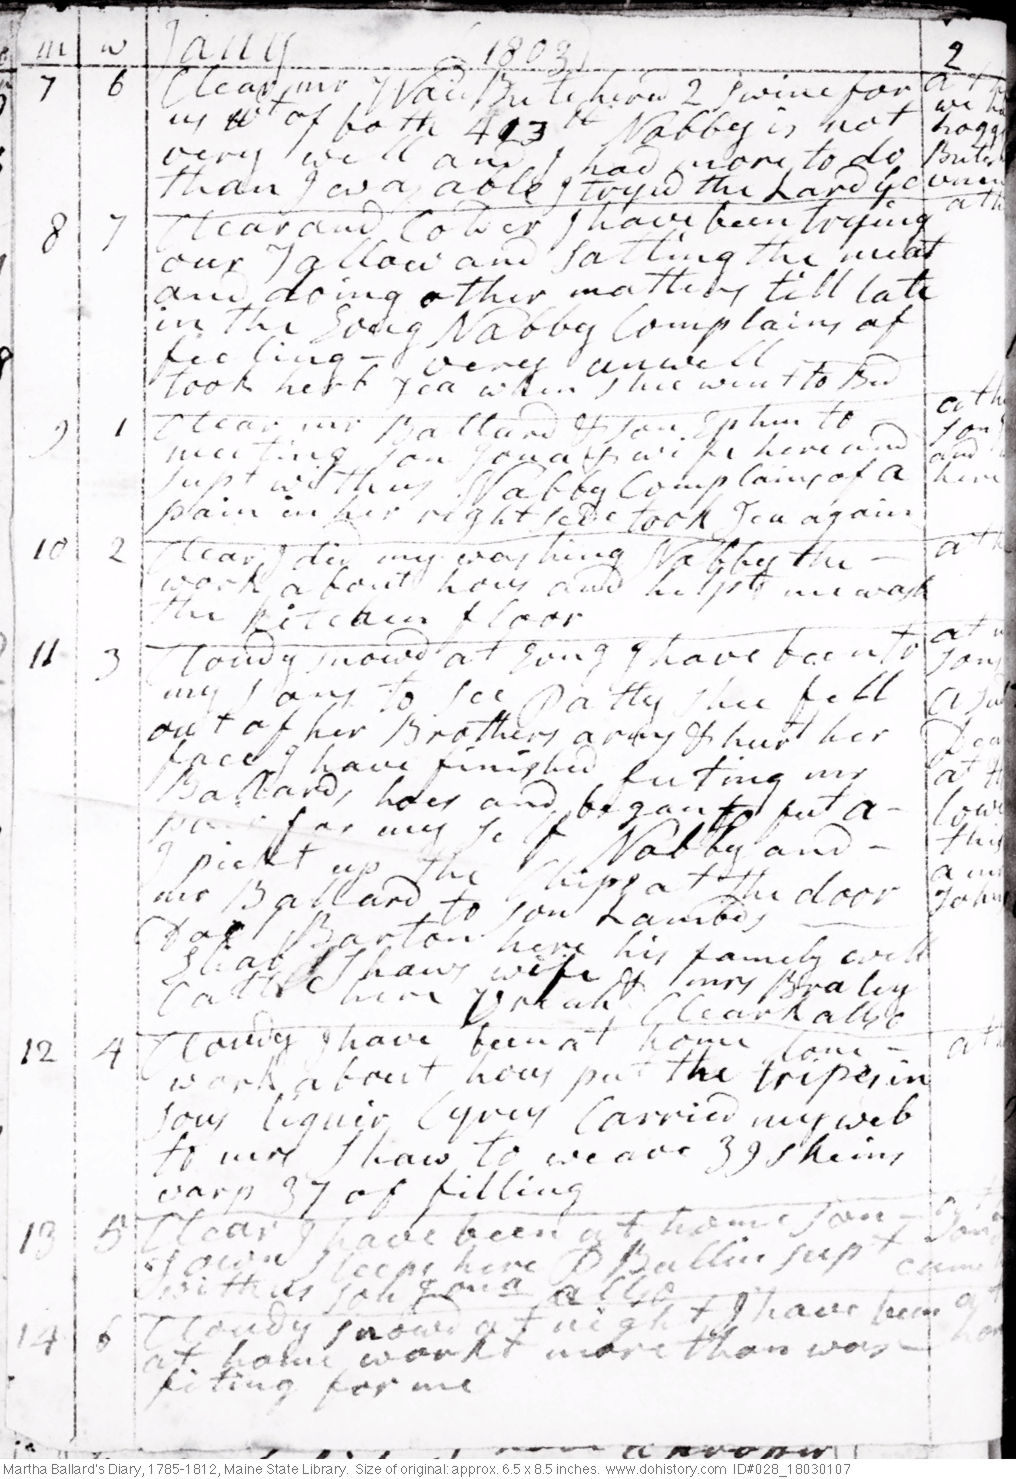 m w Jany 1803 2
7 6 Clear mr Wall Butchered 2 swine for at
us wt of both 413 lb Nabby is not we
very well and I had more to do hogg
than I was able I tryed the Lard &c Butch
8 7 Clear and Colder I have been trying at h
our Tallow and Salting the meat
and doing other matters till late
in the Evng Nabby Complains of
feeling very unwell
took herb Tea when shee went to Bed
9 1 Clear mr Ballard & son Ephm to at h
meeting son Jonas wife here and son
supt with us Nabby Complains of a and
pain in her right side took Tea again here
10 2 Clear I did my washing Nabby the at h
work about hous and helpt me wash
the kitchen floor
11 3 Cloudy snowd at Evng I have been to at
my sons to see Patty shee fell sons
out of her Brothers arms & hurt her
face I have finished futing mr
Ballards hoes and began to fut a at
pair for my self Nabby and this
I pickt up the Chips at the door
mr Ballard to son Lambds John
Doct Barton here his family well
Eliab Shaws wife & mrs Braley
Calld here Clark allso
12 4 Cloudy I have been at home Done at
work about hous put the tripes in
sour liquir Cyrus Carried my web
to mrs Shaw to weave 39 skeins
warp 37 of filling
13 5 Clear I have been at home son
Town sleeps here D Ballin supt came
with us son Jona allso
14 6 Cloudy snowd at night I have been at
at home workt more than was
fiting for me
Martha Ballard's Diary, 1785-1812, Maine State Library. Size of original: approx. 6.5 x 8.5 inches. www.dohistory.com ID#028_18030107